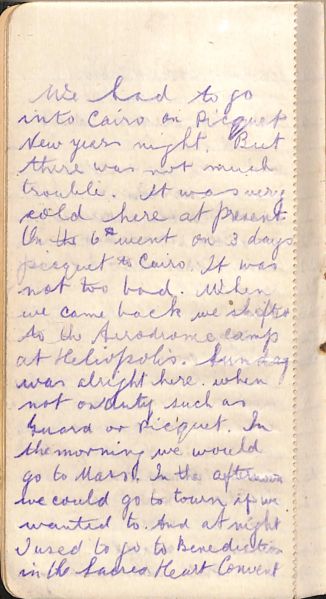 We had to go
into Cairo on Picquet
New years night. But
there was not much
trouble. It was very
cold here at present
On the 6th went on 3 days
picquet to Cairo. It was
not too bad. When
we came back we shifted
to the Aerodrome camp
at Heliopolis. Sunday
was alright here. when
not on duty such as
Guard or Picquet. In
the morning we would
go to Mass. In the afternoon
we could go to town if we
wanted to. And at night
I used to go to Benediction
in the Sacred Heart Convent